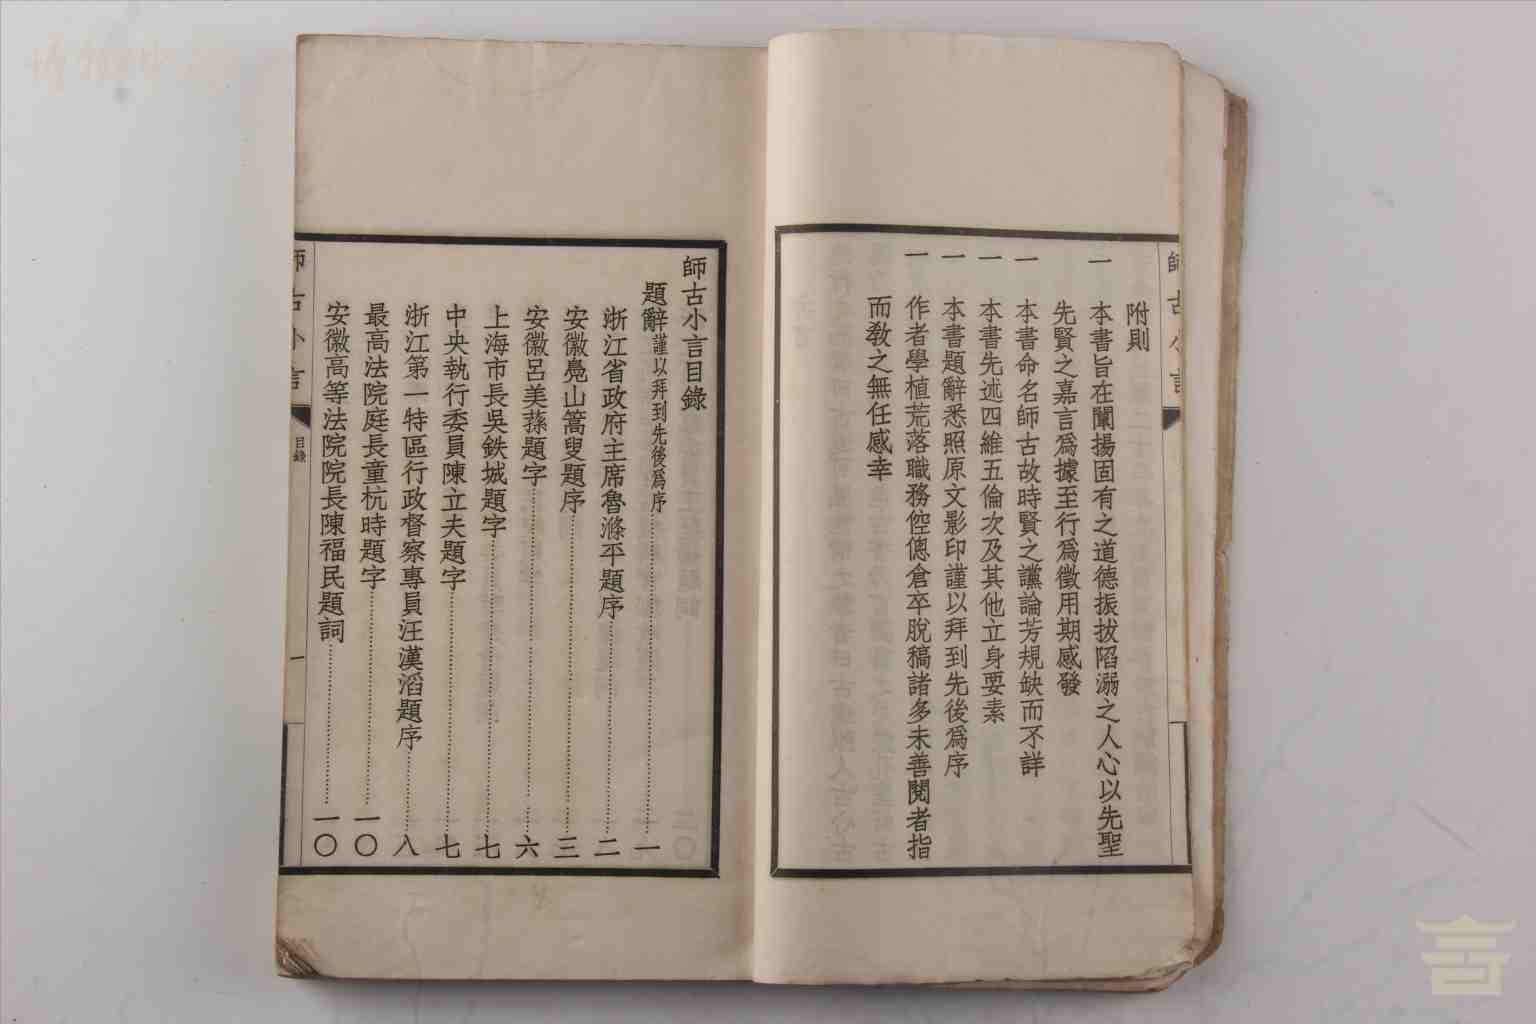 師古小言
附則
一 本書旨在闡揚固有之道德振拔陷溺之人心以先聖
先賢之嘉言爲據至行爲徵用期感發
一 本書命名師古故時賢之讜論芳規缺而不詳
一 本書先述四維五倫次及其他立身要素
一 本書題辭悉照原文影印謹以拜到先後爲序
一 作者學植荒落職務倥傯倉卒脫稿諸多未善閱者指
而敎之無任感幸
師古小言目錄
題辭謹以拜到先後爲序……一
浙江省政府主席魯滌平題序……二
安徽鳧山篙叟題序……三
安徽呂美蓀題字……六
上海市長吳鉄城題字……七
中央執行委員陳立夫題字……七
浙江第一特區行政督察專員汪漢滔題序……八
最高法院庭長童杭時題字……一〇
安徽高等法院院長陳福民題詞……一〇
師古小言
目錄
一